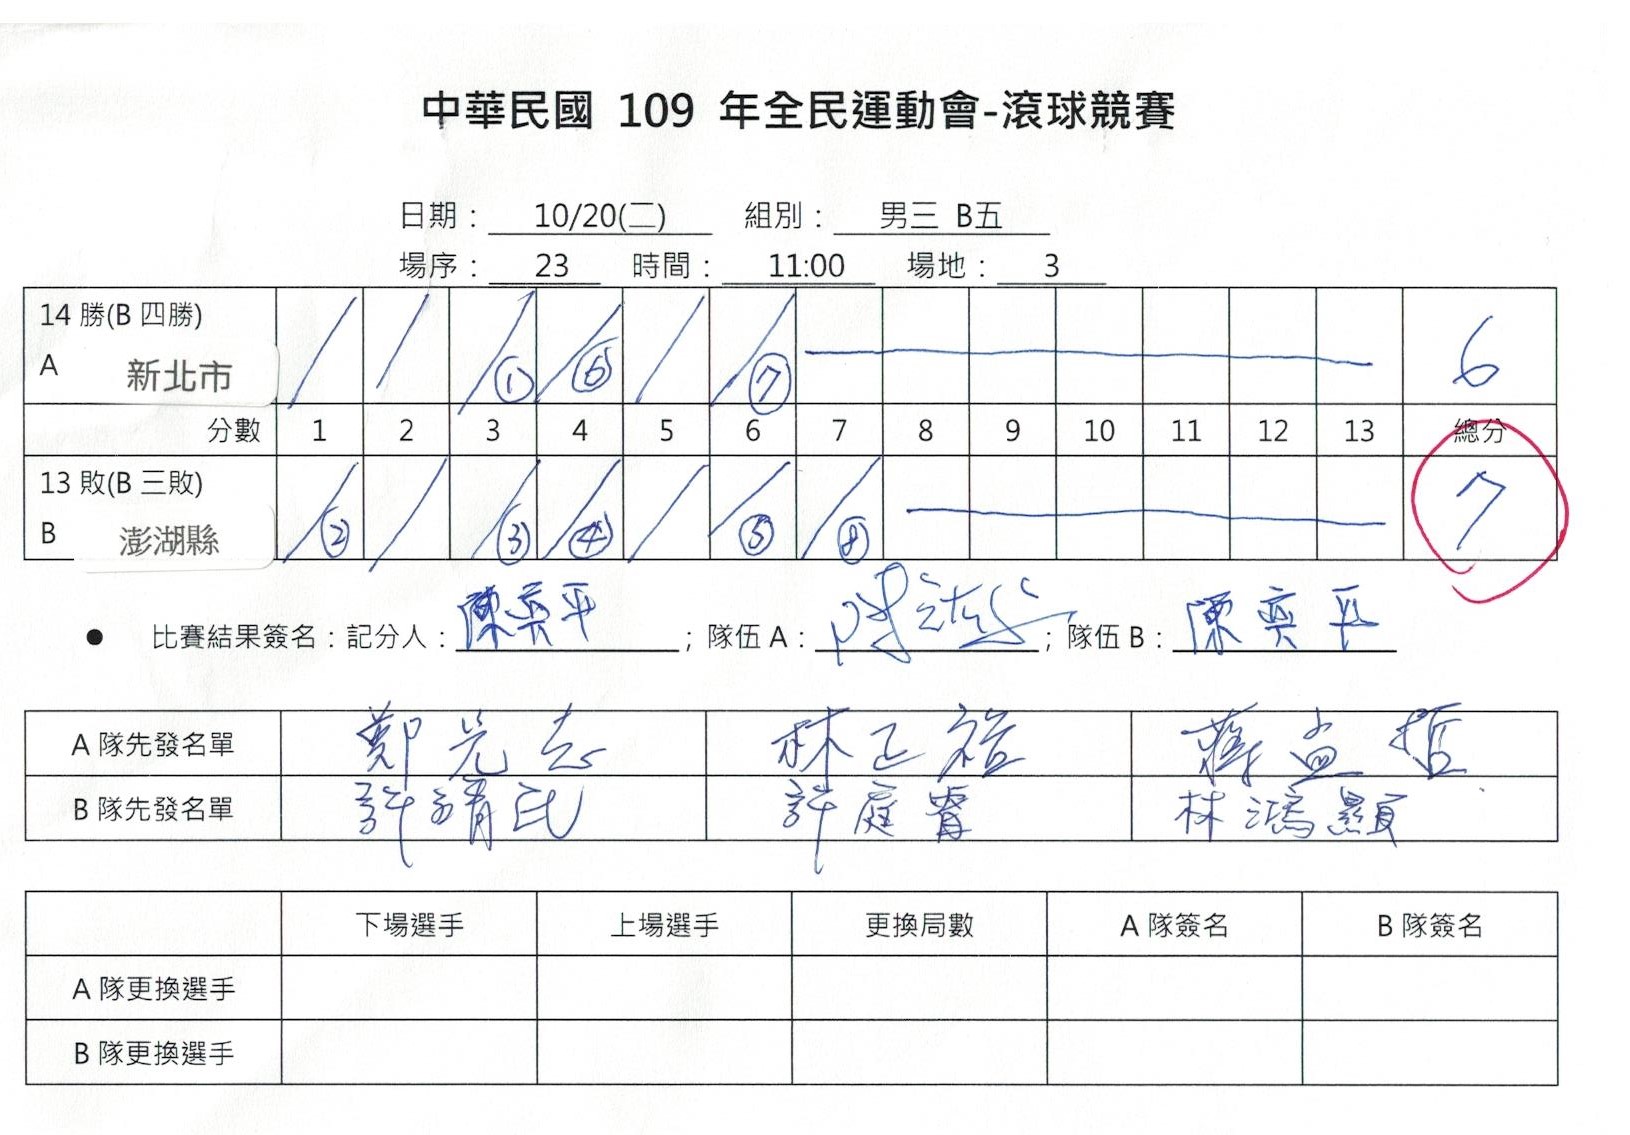 中華民國 109 年全民運動會-滾球競賽
日期： 10/20(二) 組別： 男三 B五
場序： 23 時間： 11:00 場地： 3
14 勝(B 四勝)
A 新北市 / / /① /⑥ / /⑦ 6
分數 1 2 3 4 5 6 7 8 9 10 11 12 13 總分
13 敗(B 三敗)
B 澎湖縣 /② / /③ /④ / /⑤ /⑧ 7
● 比賽結果簽名：記分人：陳奕平；隊伍 A：；隊伍 B：陳奕平
A 隊先發名單 鄭光志 林正裕 蔣孟哲
B 隊先發名單 許靖民 許庭睿 林鴻顯
下場選手 上場選手 更換局數 A 隊簽名 B 隊簽名
A 隊更換選手
B 隊更換選手